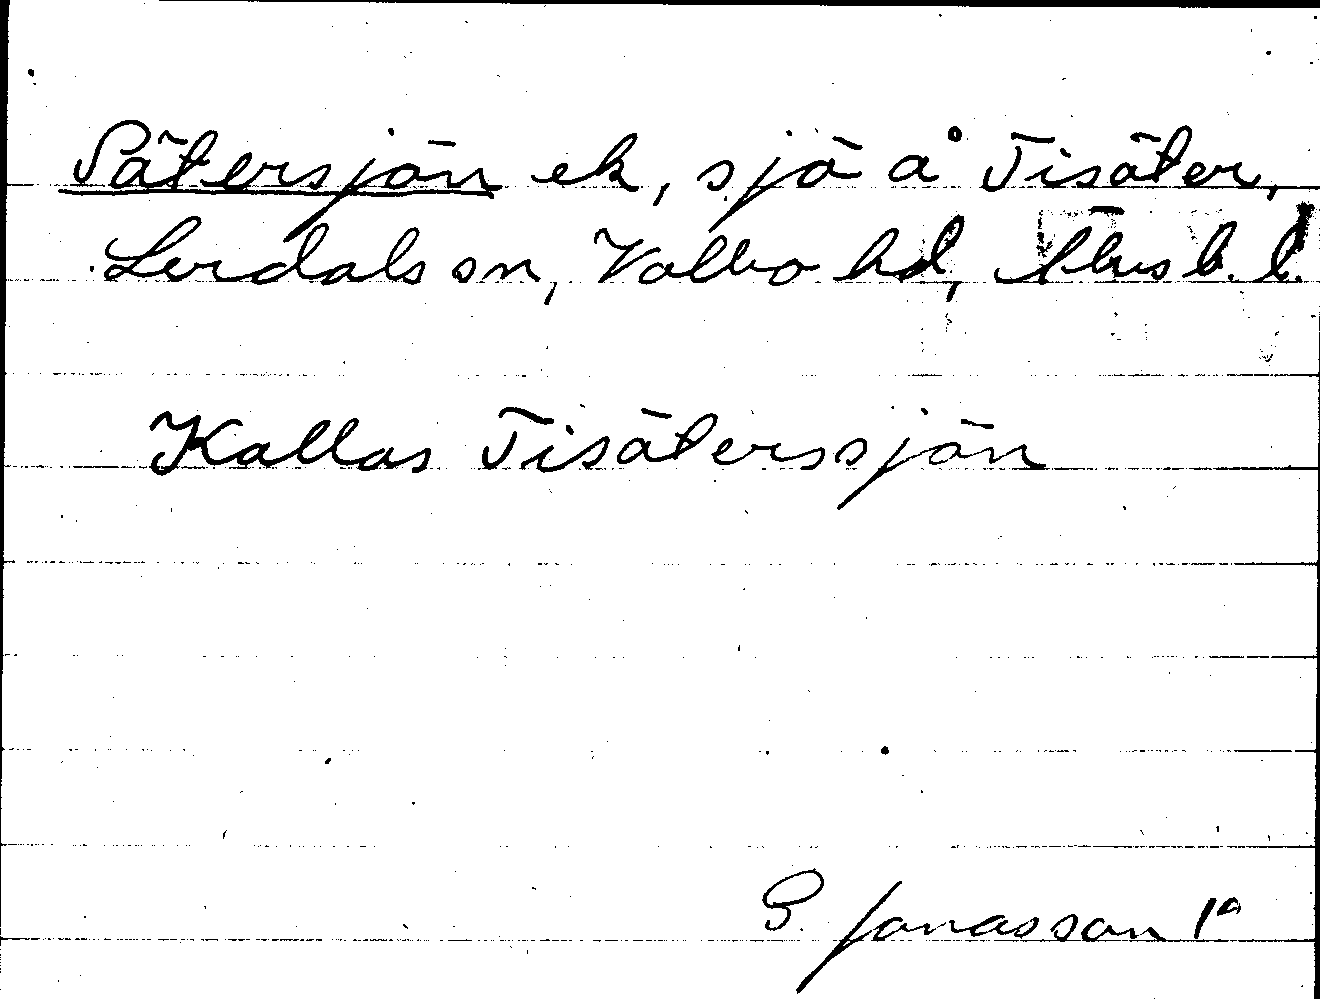 Sätersjön ek, sjö å Tisäter,
Lerdals sn, Valbo hd, Älvsb. l.
Kallas Tisäterssjön
G. Jonasson 1a